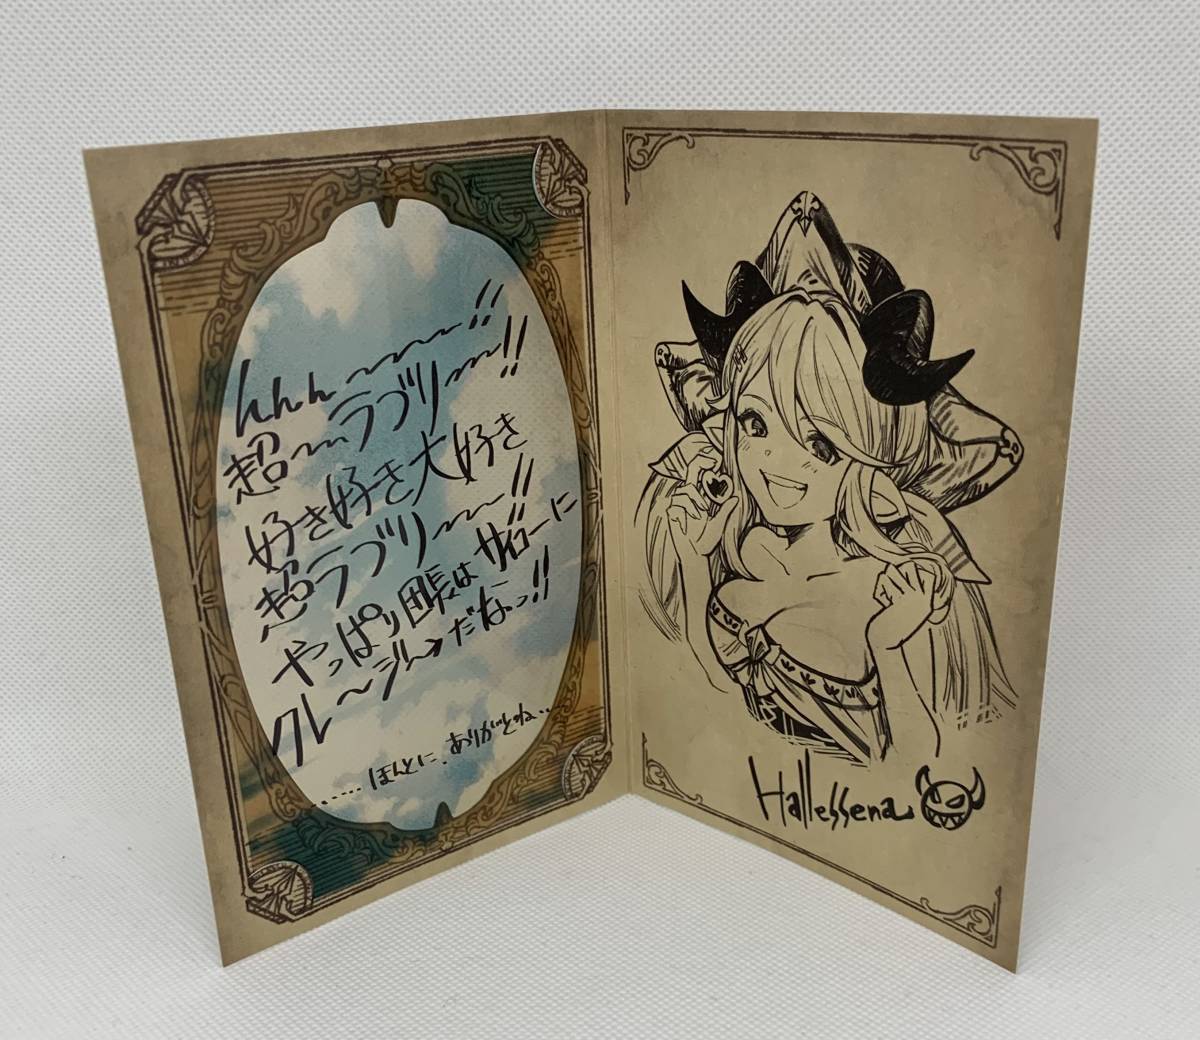 んんん〜〜〜!!
超〜〜ラブリ〜〜!!
好き好き大好き
超ラブリ〜〜!!
やっぱり団長はサイコーに
クレ〜ジ〜だなっ!!
......ほんとに、ありがとね..
Hallessena